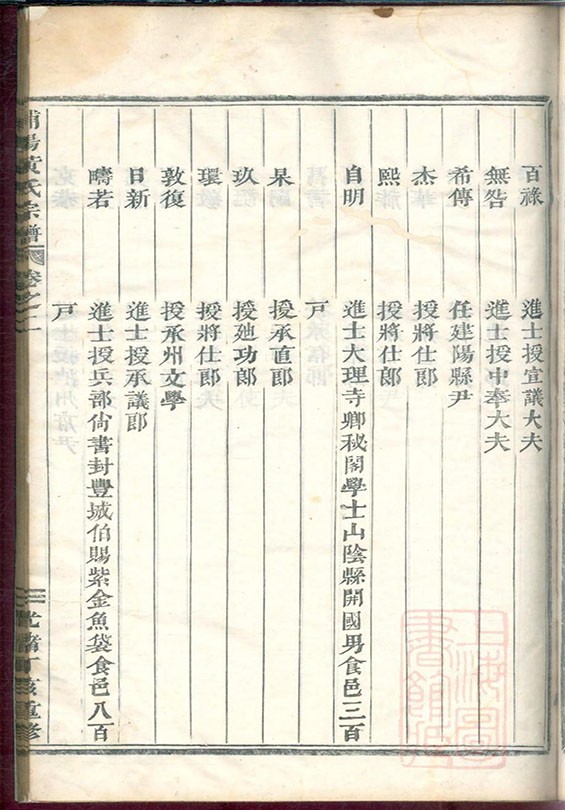 百祿 進士授宣議大夫
無咎 進士授中奉大夫
希傳 任建陽縣尹
杰 授將仕郎
熙 授將仕郎
自明 進士大理寺卿秘閣學士山陰縣開國男食邑三百
戸
杲 授承直郎
玖 授廸功郎
環 授將仕郎
敦復 授承州文學
日新 進士授承議郎
疇若 進士授兵部尙書封豐城伯賜紫金魚袋食邑八百
戸
浦陽黃氏宗譜 卷之一 光緒丁亥重修
上海圖書館藏